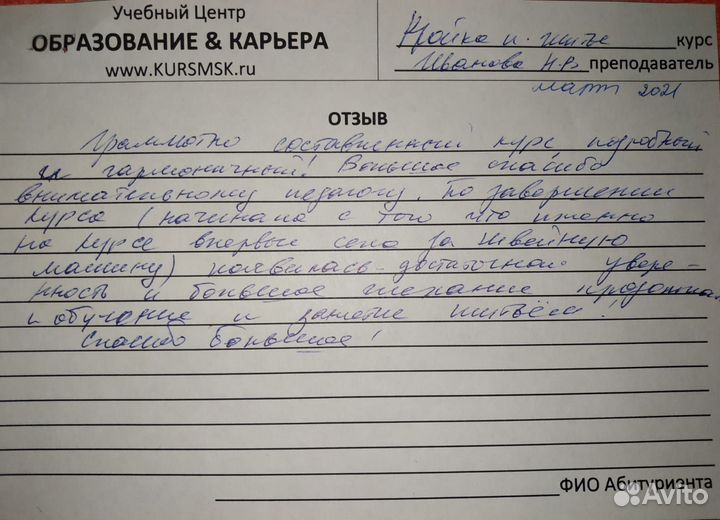 Учебный Центр
ОБРАЗОВАНИЕ & КАРЬЕРА
www.KURSMSK.ru
Кройка и шитье курс
Иванова Н.В. преподаватель
март 2021
ОТЗЫВ
Граммотно составленный курс, подробный
и гармоничный! Большое спасибо
внимательному педагогу. По завершении
курса (начинала с того что именно
на курсе впервые села за швейную
машину) появилась достаточная увере-
нность и большое желание продолжать
и обучение и занятие шитьём!
Спасибо большое!
ФИО Абитуриента
Avito